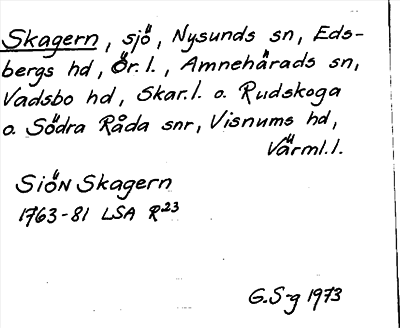 Skagern, sjö, Nysunds sn, Eds-
bergs hd, Ör. l., Amnehärads sn,
Vadsbo hd, Skar. l. o. Rudskoga
o. Södra Råda snr, Visnums hd,
Värml. l.
Siön Skagern
1763-81 LSA R23
G. S-g 1973